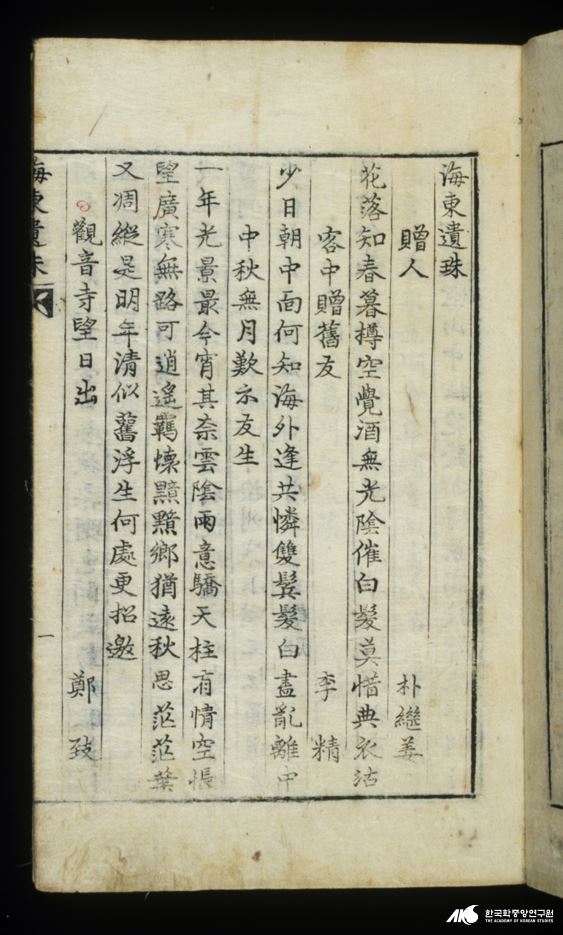 海東遺珠
贈人 朴繼姜
花落知春暮樽空覺酒無光陰催白髮莫惜典衣沽
客中贈舊友 李精
少日朝中面何知海外逢共憐雙鬂髮白盡亂離中
中秋無月歎示友生
一年光景最今宵其奈雲陰雨意驕天柱有情空悵
望廣寒無路可逍遙羈懷黯黯鄕猶遠秋思茫茫葉
又凋縱是明年清似舊浮生何處更招邀
觀音寺望日出 鄭致
海東遺珠
一
한국학중앙연구원
THE ACADEMY OF KOREAN STUDIES
AKS